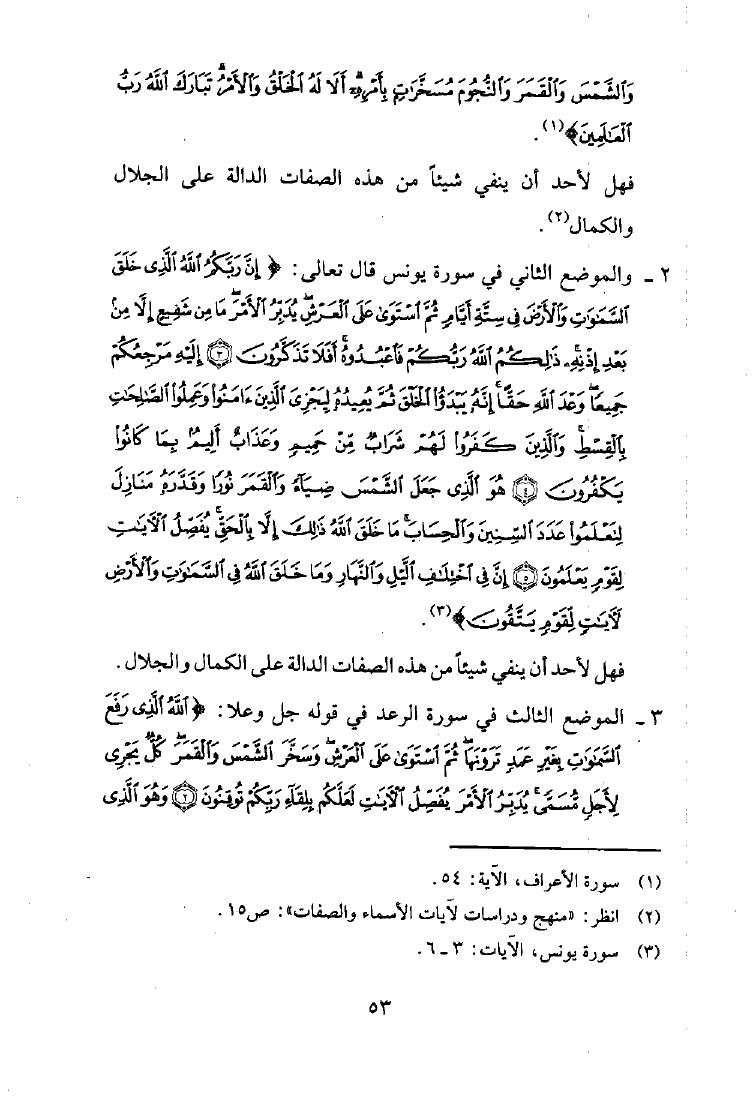 وَٱلشَّمْسَ وَٱلْقَمَرَ وَٱلنُّجُومَ مُسَخَّرَٰتٍ بِأَمْرِهِۦٓ ۗ أَلَا لَهُ ٱلْخَلْقُ وَٱلْأَمْرُ ۗ تَبَارَكَ ٱللَّهُ رَبُّ
ٱلْعَـٰلَمِينَ﴾(١).
فهل لأحد أن ينفي شيئاً من هذه الصفات الدالة على الجلال
والكمال(٢).
٢ ـ والموضع الثاني في سورة يونس قال تعالى: ﴿ إِنَّ رَبَّكُمُ ٱللَّهُ ٱلَّذِى خَلَقَ
ٱلسَّمَـٰوَٰتِ وَٱلْأَرْضَ فِى سِتَّةِ أَيَّامٍ ثُمَّ ٱسْتَوَىٰ عَلَى ٱلْعَرْشِ ۖ يُدَبِّرُ ٱلْأَمْرَ ۖ مَا مِن شَفِيعٍ إِلَّا مِنۢ
بَعْدِ إِذْنِهِۦ ۚ ذَٰلِكُمُ ٱللَّهُ رَبُّكُمْ فَٱعْبُدُوهُ ۚ أَفَلَا تَذَكَّرُونَ ٣ إِلَيْهِ مَرْجِعُكُمْ
جَمِيعًا ۖ وَعْدَ ٱللَّهِ حَقًّا ۚ إِنَّهُۥ يَبْدَؤُا۟ ٱلْخَلْقَ ثُمَّ يُعِيدُهُۥ لِيَجْزِىَ ٱلَّذِينَ ءَامَنُوا۟ وَعَمِلُوا۟ ٱلصَّـٰلِحَـٰتِ
بِٱلْقِسْطِ ۚ وَٱلَّذِينَ كَفَرُوا۟ لَهُمْ شَرَابٌ مِّنْ حَمِيمٍ وَعَذَابٌ أَلِيمٌۢ بِمَا كَانُوا۟
يَكْفُرُونَ ٤ هُوَ ٱلَّذِى جَعَلَ ٱلشَّمْسَ ضِيَآءً وَٱلْقَمَرَ نُورًا وَقَدَّرَهُۥ مَنَازِلَ
لِتَعْلَمُوا۟ عَدَدَ ٱلسِّنِينَ وَٱلْحِسَابَ ۚ مَا خَلَقَ ٱللَّهُ ذَٰلِكَ إِلَّا بِٱلْحَقِّ ۚ يُفَصِّلُ ٱلْـَٔايَـٰتِ
لِقَوْمٍ يَعْلَمُونَ ٥ إِنَّ فِى ٱخْتِلَـٰفِ ٱلَّيْلِ وَٱلنَّهَارِ وَمَا خَلَقَ ٱللَّهُ فِى ٱلسَّمَـٰوَٰتِ وَٱلْأَرْضِ
لَـَٔايَـٰتٍ لِّقَوْمٍ يَتَّقُونَ﴾(٣).
فهل لأحد أن ينفي شيئاً من هذه الصفات الدالة على الكمال والجلال.
٣ ـ الموضع الثالث في سورة الرعد في قوله جل وعلا: ﴿ ٱللَّهُ ٱلَّذِى رَفَعَ
ٱلسَّمَـٰوَٰتِ بِغَيْرِ عَمَدٍ تَرَوْنَهَا ۖ ثُمَّ ٱسْتَوَىٰ عَلَى ٱلْعَرْشِ ۖ وَسَخَّرَ ٱلشَّمْسَ وَٱلْقَمَرَ ۖ كُلٌّ يَجْرِى
لِأَجَلٍ مُّسَمًّى ۚ يُدَبِّرُ ٱلْأَمْرَ يُفَصِّلُ ٱلْـَٔايَـٰتِ لَعَلَّكُم بِلِقَآءِ رَبِّكُمْ تُوقِنُونَ ٢ وَهُوَ ٱلَّذِى
(١) سورة الأعراف، الآية: ٥٤.
(٢) انظر: «منهج ودراسات لآيات الأسماء والصفات»: ص١٥.
(٣) سورة يونس، الآيات: ٣ ـ ٦.
٥٣